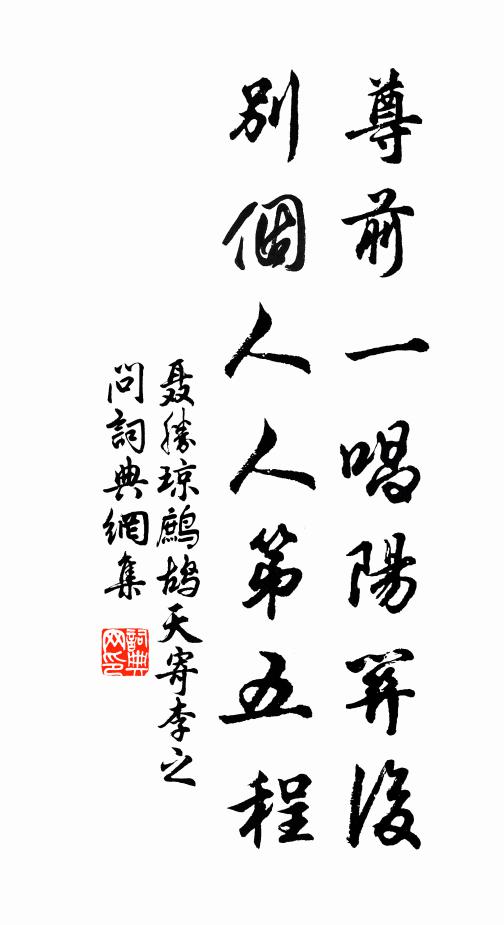 尊前一唱陽關後
別個人人第五程
聶勝琼鷓鴣天寄李之
問詞典網集
詞典
网印